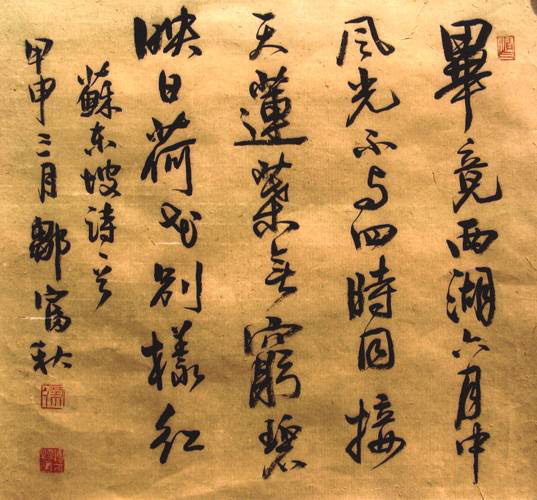 畢竟西湖六月中
風光不与四時同接
天蓮葉無窮碧
映日荷花別樣红
蘇东坡詩
甲申三月鄒富秋